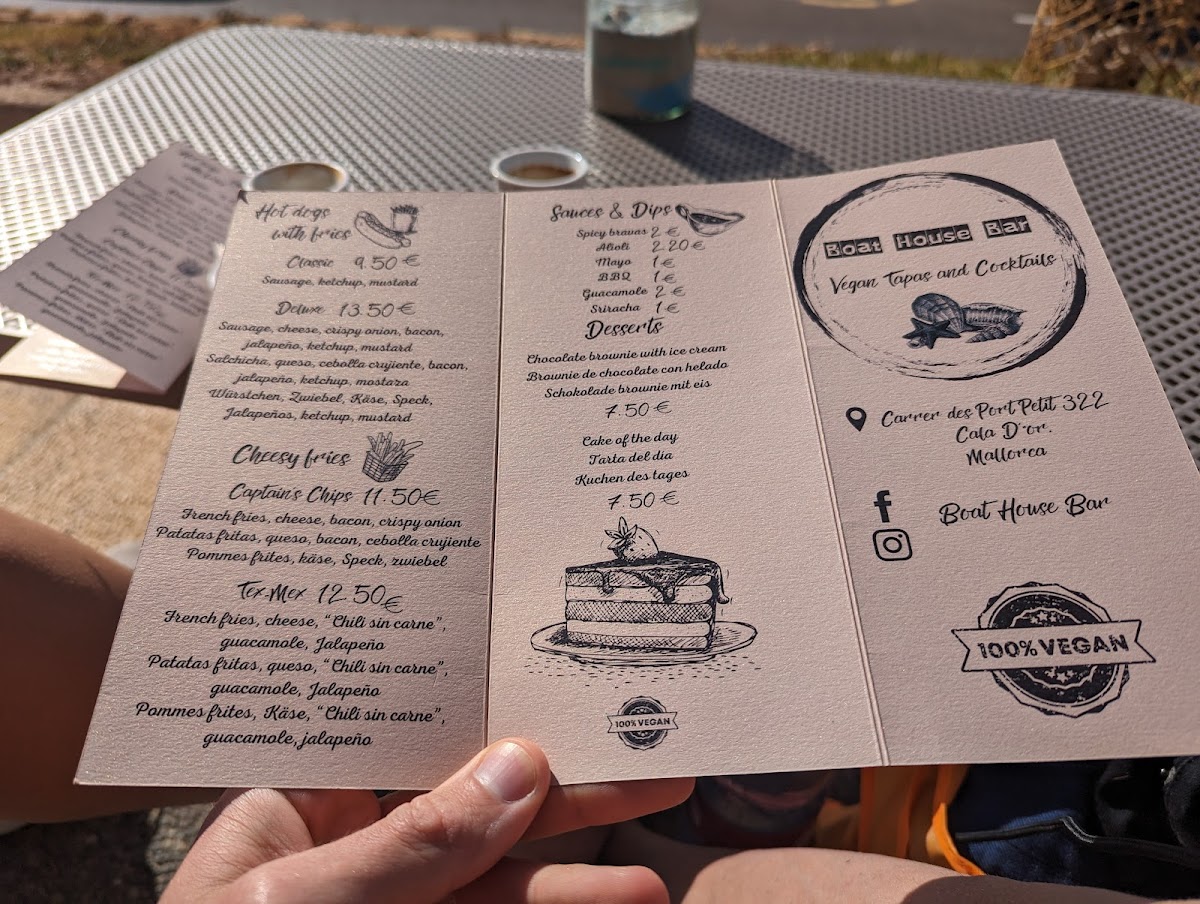 Hot dogs
with fries
Classic 9.50€
Sausage, ketchup, mustard
Deluxe 13.50€
Sausage, cheese, crispy onion, bacon,
jalapeño, ketchup, mustard
Salchicha, queso, cebolla crujiente, bacon,
jalapeño, ketchup, mostaza
Würstchen, Zwiebel, Käse, Speck,
Jalapeños, ketchup, mustard
Cheesy fries
Captain's Chips 11.50€
French fries, cheese, bacon, crispy onion
Patatas fritas, queso, bacon, cebolla crujiente
Pommes frites, käse, Speck, zwiebel
Tex-Mex 12.50€
French fries, cheese, "Chili sin carne",
guacamole, Jalapeño
Patatas fritas, queso, "Chili sin carne",
guacamole, Jalapeño
Pommes frites, Käse, "Chili sin carne",
guacamole, jalapeño
Sauces & Dips
Spicy bravas 2 €
Alioli 2.20€
Mayo 1€
BBQ 1€
Guacamole 2 €
Sriracha 1€
Desserts
Chocolate brownie with ice cream
Brownie de chocolate con helado
Schokolade brownie mit eis
7.50€
Cake of the day
Tarta del dia
Kuchen des tages
7.50€
100% VEGAN
Boat House Bar
Vegan Tapas and Cocktails
Carrer des Port Petit 322
Cala D'or.
Mallorca
Boat House Bar
100% VEGAN